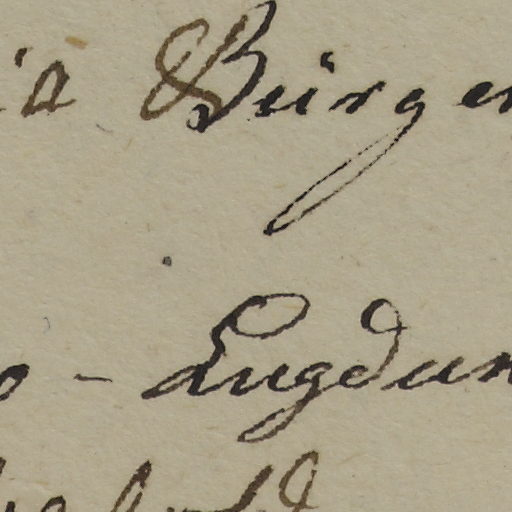 ia & Bürger
o - Lugdun